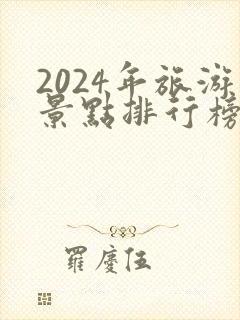 2024年旅游
景點排行榜
羅慶伍